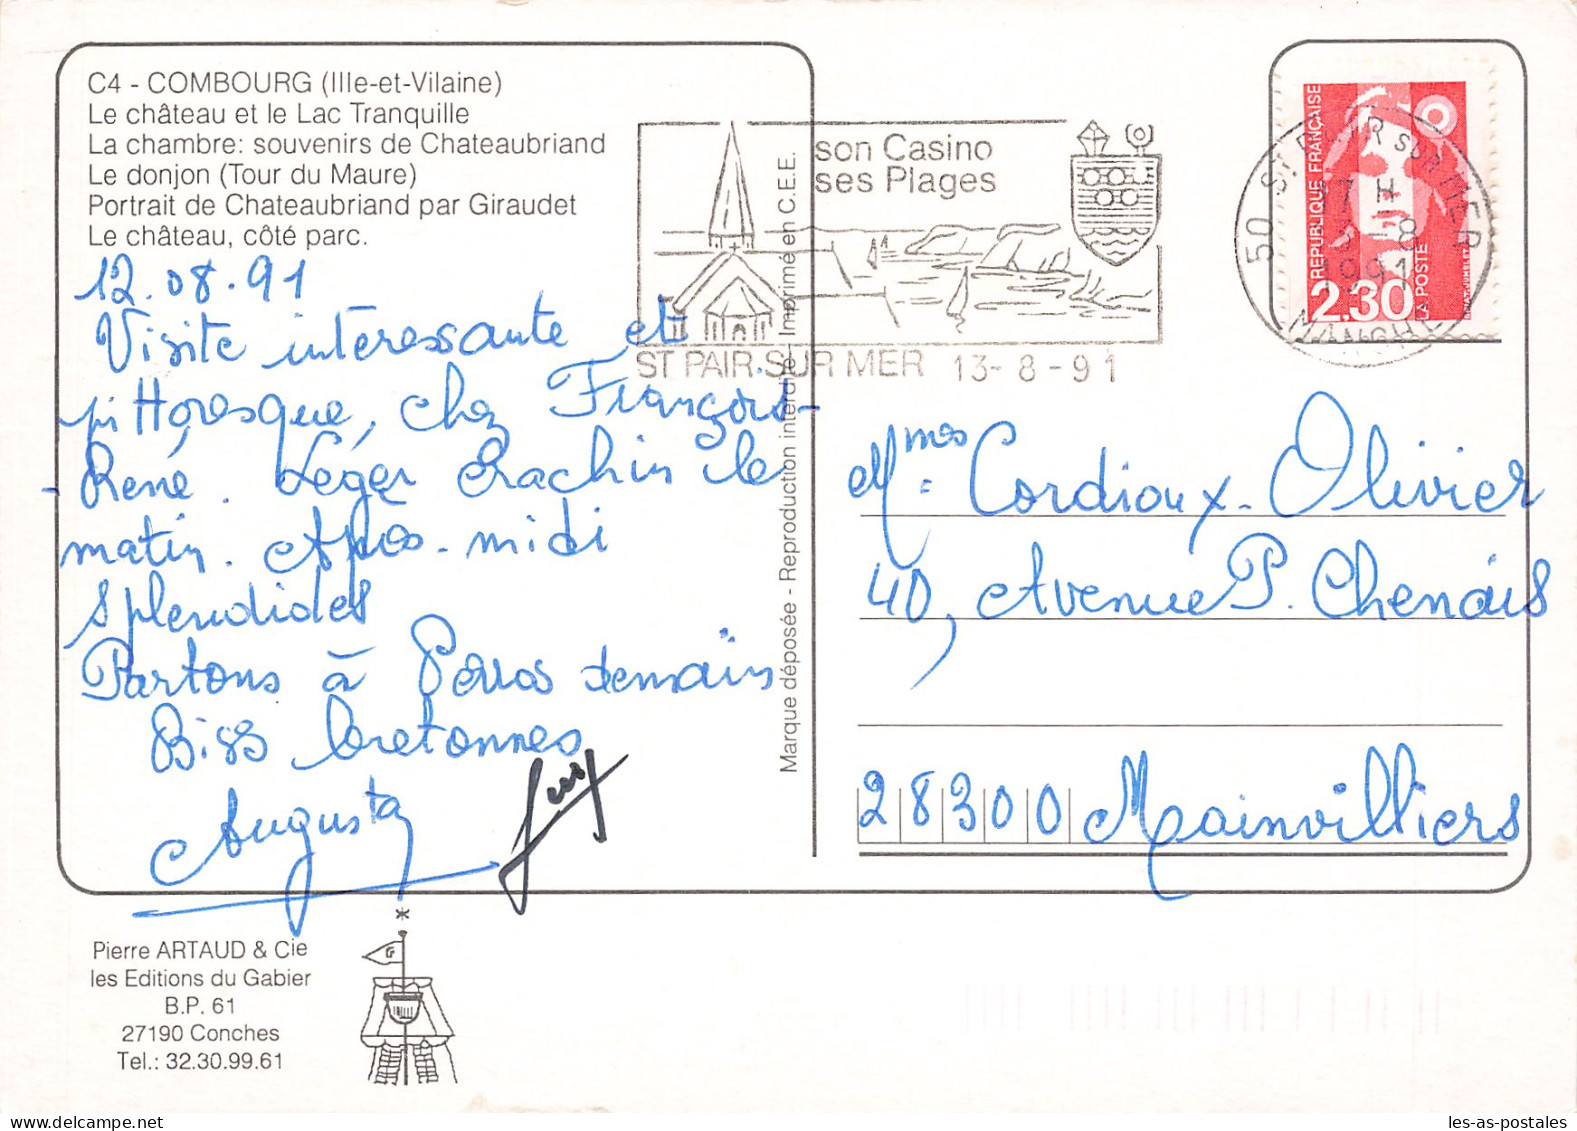 C4 - COMBOURG (Ille-et-Vilaine)
Le château et le Lac Tranquille
La chambre: souvenirs de Chateaubriand
Le donjon (Tour du Maure)
Portrait de Chateaubriand par Giraudet
Le château, côté parc.
12.08.91
Visite intéressante et
pittoresque, chez François-
René. Léger Crachin le
matin. Après-midi
splendides
Partons à Perros demain
Biss bretonnes
Augusta
Pierre ARTAUD & Cie
les Editions du Gabier
B.P. 61
27190 Conches
Tel.: 32.30.99.61
Marque déposée - Reproduction interdite - Imprimé en C.E.E.
son Casino
ses Plages
ST PAIR SUR MER 13-8-91
50 ST PAIR SUR MER
17 H
13-8
1991
MANCHE
REPUBLIQUE FRANÇAISE
LA POSTE
2.30
Mmes Cordioux-Olivier
40, Avenue P. Chenais
28300 Mainvilliers
les-as-postales